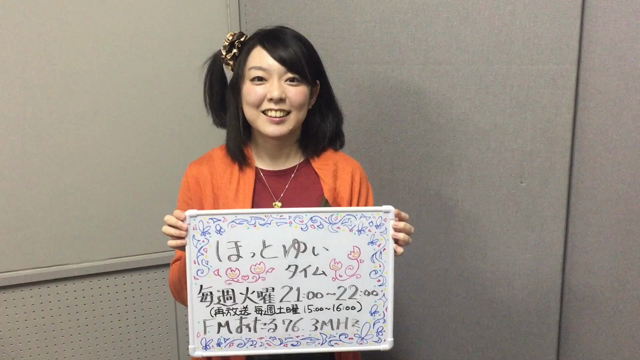 ほっとゆぃ
タイム
毎週火曜21:00~22:00
(再放送 毎週土曜 15:00~16:00)
FMおたる76.3MHz